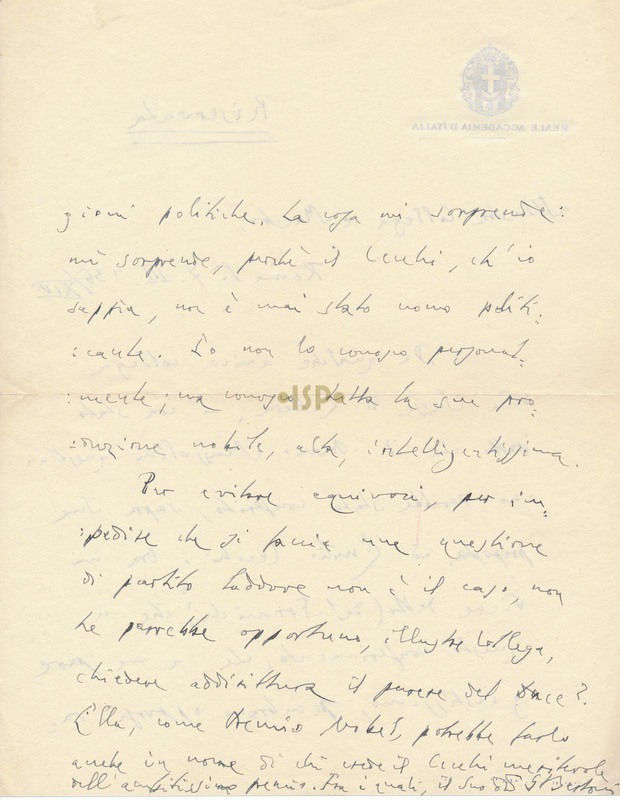 REALE ACCADEMIA D'ITALIA
Riservata
gioni politiche. La cosa mi sorprende:
mi sorprende, perchè il Cecchi, ch'io
sappia, non è mai stato uomo politi-
cante. Io non lo conosco personal-
mente; ma conosco tutta la sua pro-
duzione nobile, alta, intelligentissima.
ISP
Per evitare equivoci, per im-
pedire che si faccia una questione
di partito laddove non è il caso, non
Le parrebbe opportuno, illustre Collega,
chiedere addirittura il parere del Duce?
Ella, come Premio Nobel, potrebbe farlo
anche in nome di chi crede il Cecchi meritevole
dell'ambitissimo premio. Fra i quali, il Suo G Bertoni